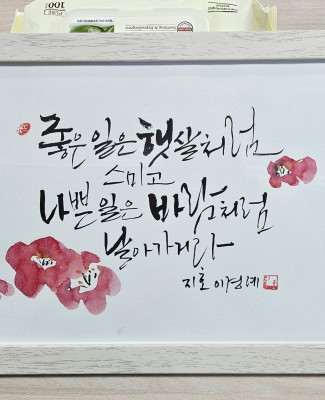 100
좋은 일은 햇살처럼
스미고
나쁜 일은 바람처럼
날아가리라
지호 이경예